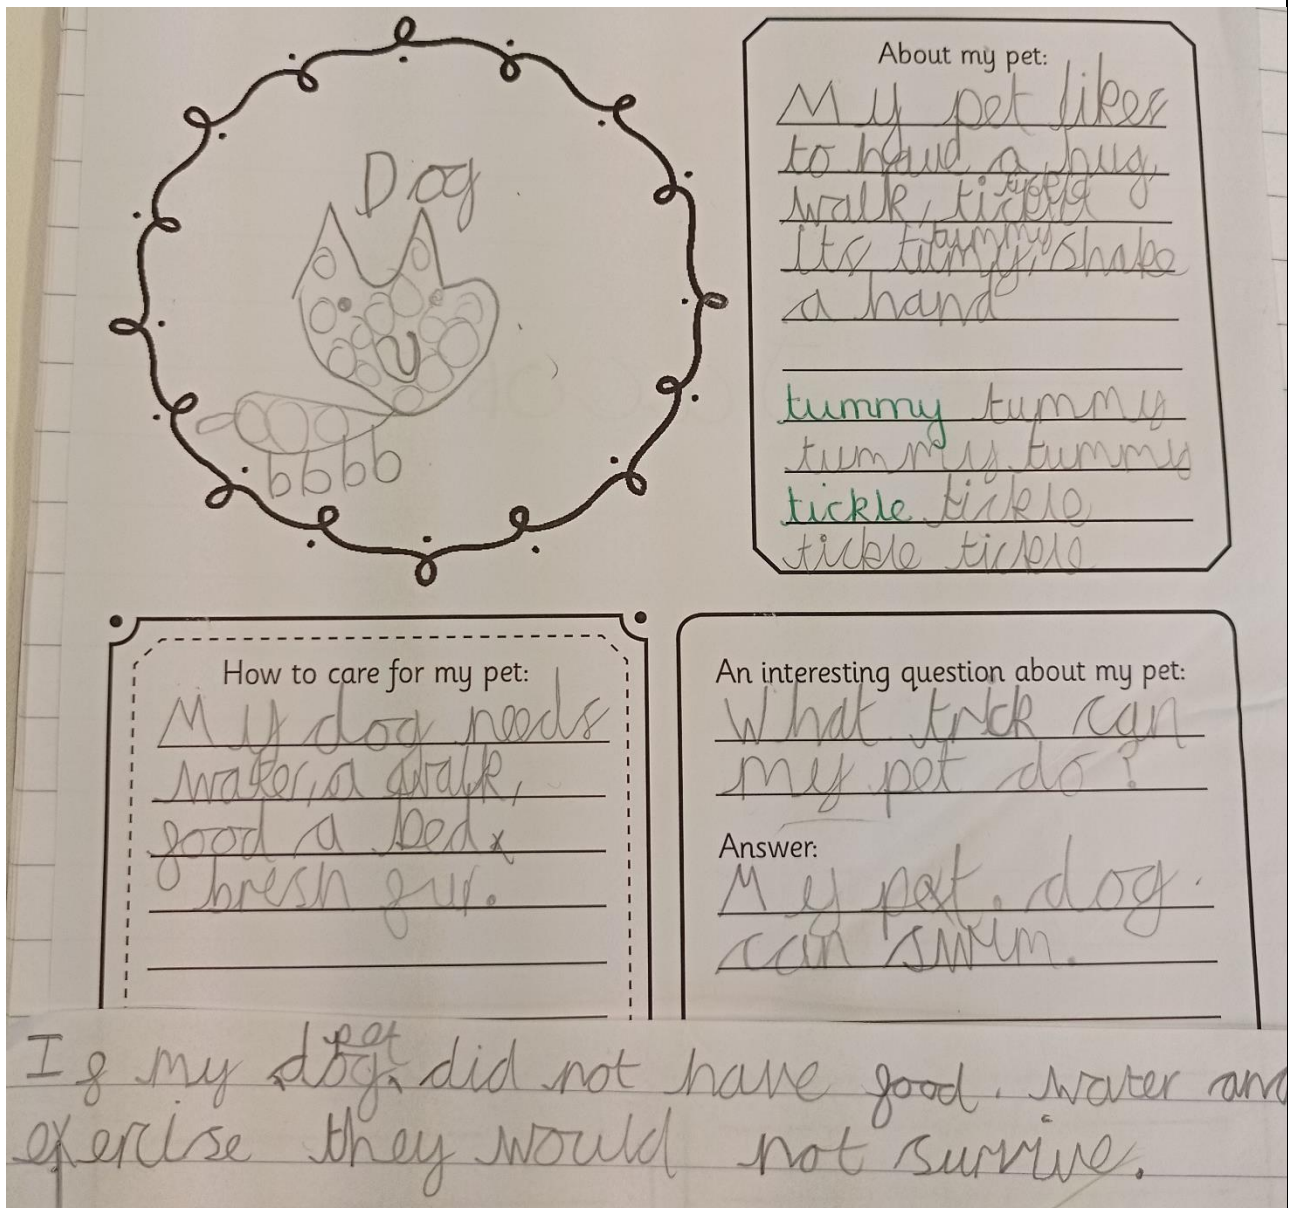 Dog
About my pet:
My pet likes
to have a hug,
walk, tickle
its tummy, shake
a hand
tummy tummy
tummy tummy
tickle tickle
tickle tickle
How to care for my pet:
My dog needs
water, a walk,
food a bed
bresh fur.
An interesting question about my pet:
What trick can
my pet do?
Answer:
My pet. dog.
can swim.
pet
If my dog, did not have food. water and
exercise they would not survive.